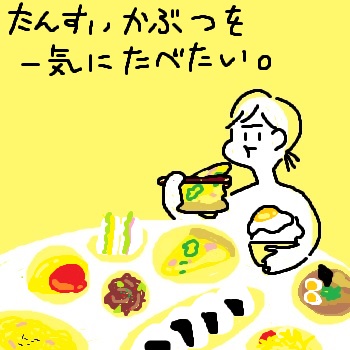 たんすいかぶつを
一気にたべたい。